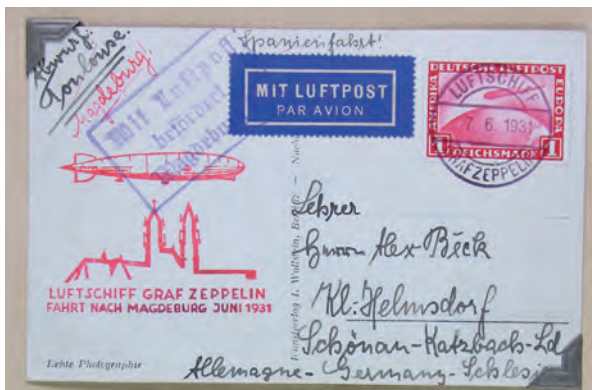 Abwurf:
Toulouse.
Magdeburg!
Spanienfahrt!
Mit Luftpost
befördert
Magdeburg
MIT LUFTPOST
PAR AVION
DEUTSCHE LUFTPOST
AMERIKA
EUROPA
1 REICHSMARK 1
LUFTSCHIFF
7. 6. 1931
GRAF ZEPPELIN
LUFTSCHIFF GRAF ZEPPELIN
FAHRT NACH MAGDEBURG JUNI 1931
Echte Photographie
Lehrer
Herrn Alex Beck
Kl: Helmsdorf
Schönau-Katzbach-Ld
Allemagne - Germany - Schlesi